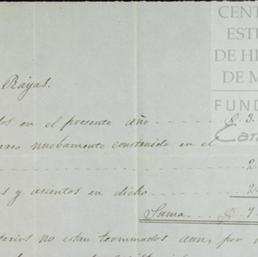 CENT
ESTU
DE HI
DE M
FUND
Ca
Rayas.
os en el presente año $ 3.
nuebamente construido en el
2
s y asientos en dicho 2
Suma $
terios no estan terminados aun, por